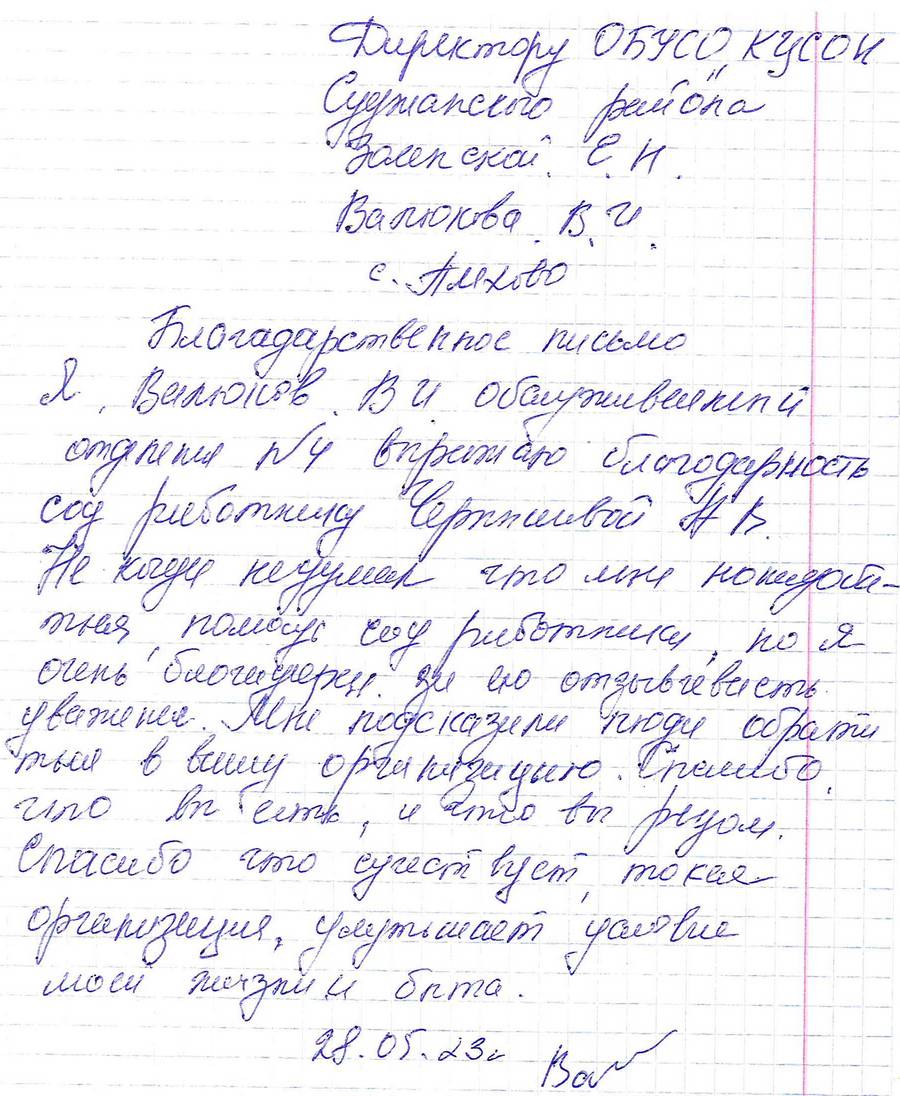 Директору ОБУСО "КЦСОН
Суджанского района
Золенской Е. Н.
Валюкова. В. И.
с. Плехово
Благадарственное письмо
Я, Валюков В И обслуживаемый
отделения №4 выражаю благодарность
соц работнику В.
Не когда недумал что мне понадоби-
тья помощь соц работника, но я
очень благодарен за ею отзывчевасть
уважения. Мне подсказали люди обрати
ться в вашу организацыю. Спасибо
что вы есть, и что вы рядом.
Спасибо что существует, такая
организация, улутьшает условие
моей жизни и быта.
28.05.23г